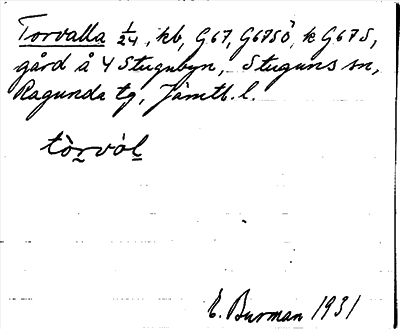 Torvalla 1/24, kb, G67, G67SÖ, k G67S,
gård å 4 Stugubyn, Stuguns sn,
Ragunda tg, Jämtl. l.
tòrvòl
E. Burman 1931